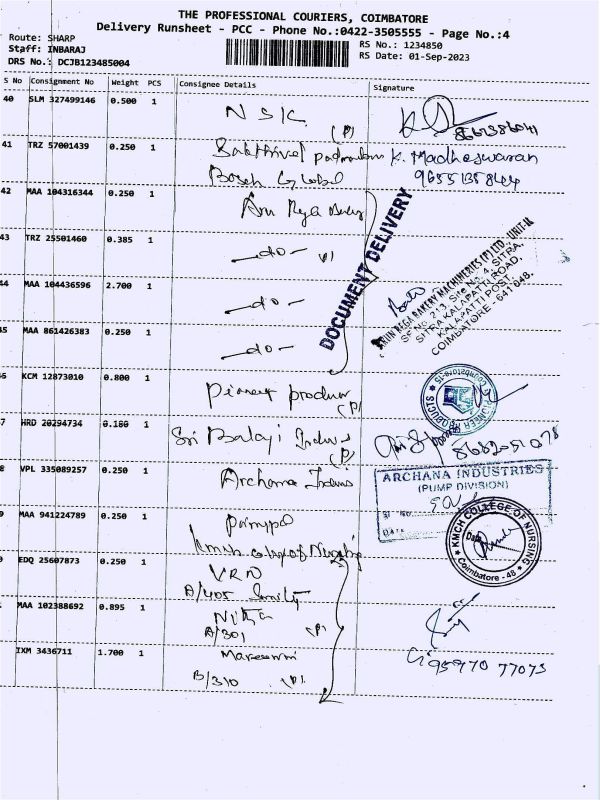 THE PROFESSIONAL COURIERS, COIMBATORE
Delivery Runsheet - PCC - Phone No.:0422-3505555 - Page No.:4
Route: SHARP
RS No.: 1234850
Staff: INBARAJ
RS Date: 01-Sep-2023
DRS No.: DCJB123485004
S No Consignment No Weight PCS Consignee Details Signature
40 SLM 327499146 0.500 1 NSK (P)
41 TRZ 57001439 0.250 1 K. Madheswaran
Bosch Global
42 MAA 104316344 0.250 1
43 TRZ 25501460 0.385 1 -do-
44 MAA 104436596 2.700 1 -do-
45 MAA 861426383 0.250 1 -do-
DOCUMENT DELIVERY
BAKERY MACHINERIES (P) LTD., UNIT-II
SITRA KALAPATTI ROAD,
KALAPATTI POST,
COIMBATORE - 641 048.
6 KCM 12873010 0.800 1 Pioneer (P)
PIONEER PRODUCTS
Coimbatore-15
7 HRD 20294734 0.180 1 Sri Balaji (P)
8 VPL 335089257 0.250 1 Archana Indus
ARCHANA INDUSTRIES
(PUMP DIVISION)
9 MAA 941224789 0.250 1 Principal
Kmch college of Nursing
KMCH COLLEGE OF NURSING
Date
Coimbatore - 48
EDQ 25607873 0.250 1 VRN
A/405
MAA 102388692 0.895 1
A/301 (P)
IXM 3436711 1.700 1
95970 77073
B/310 (P)